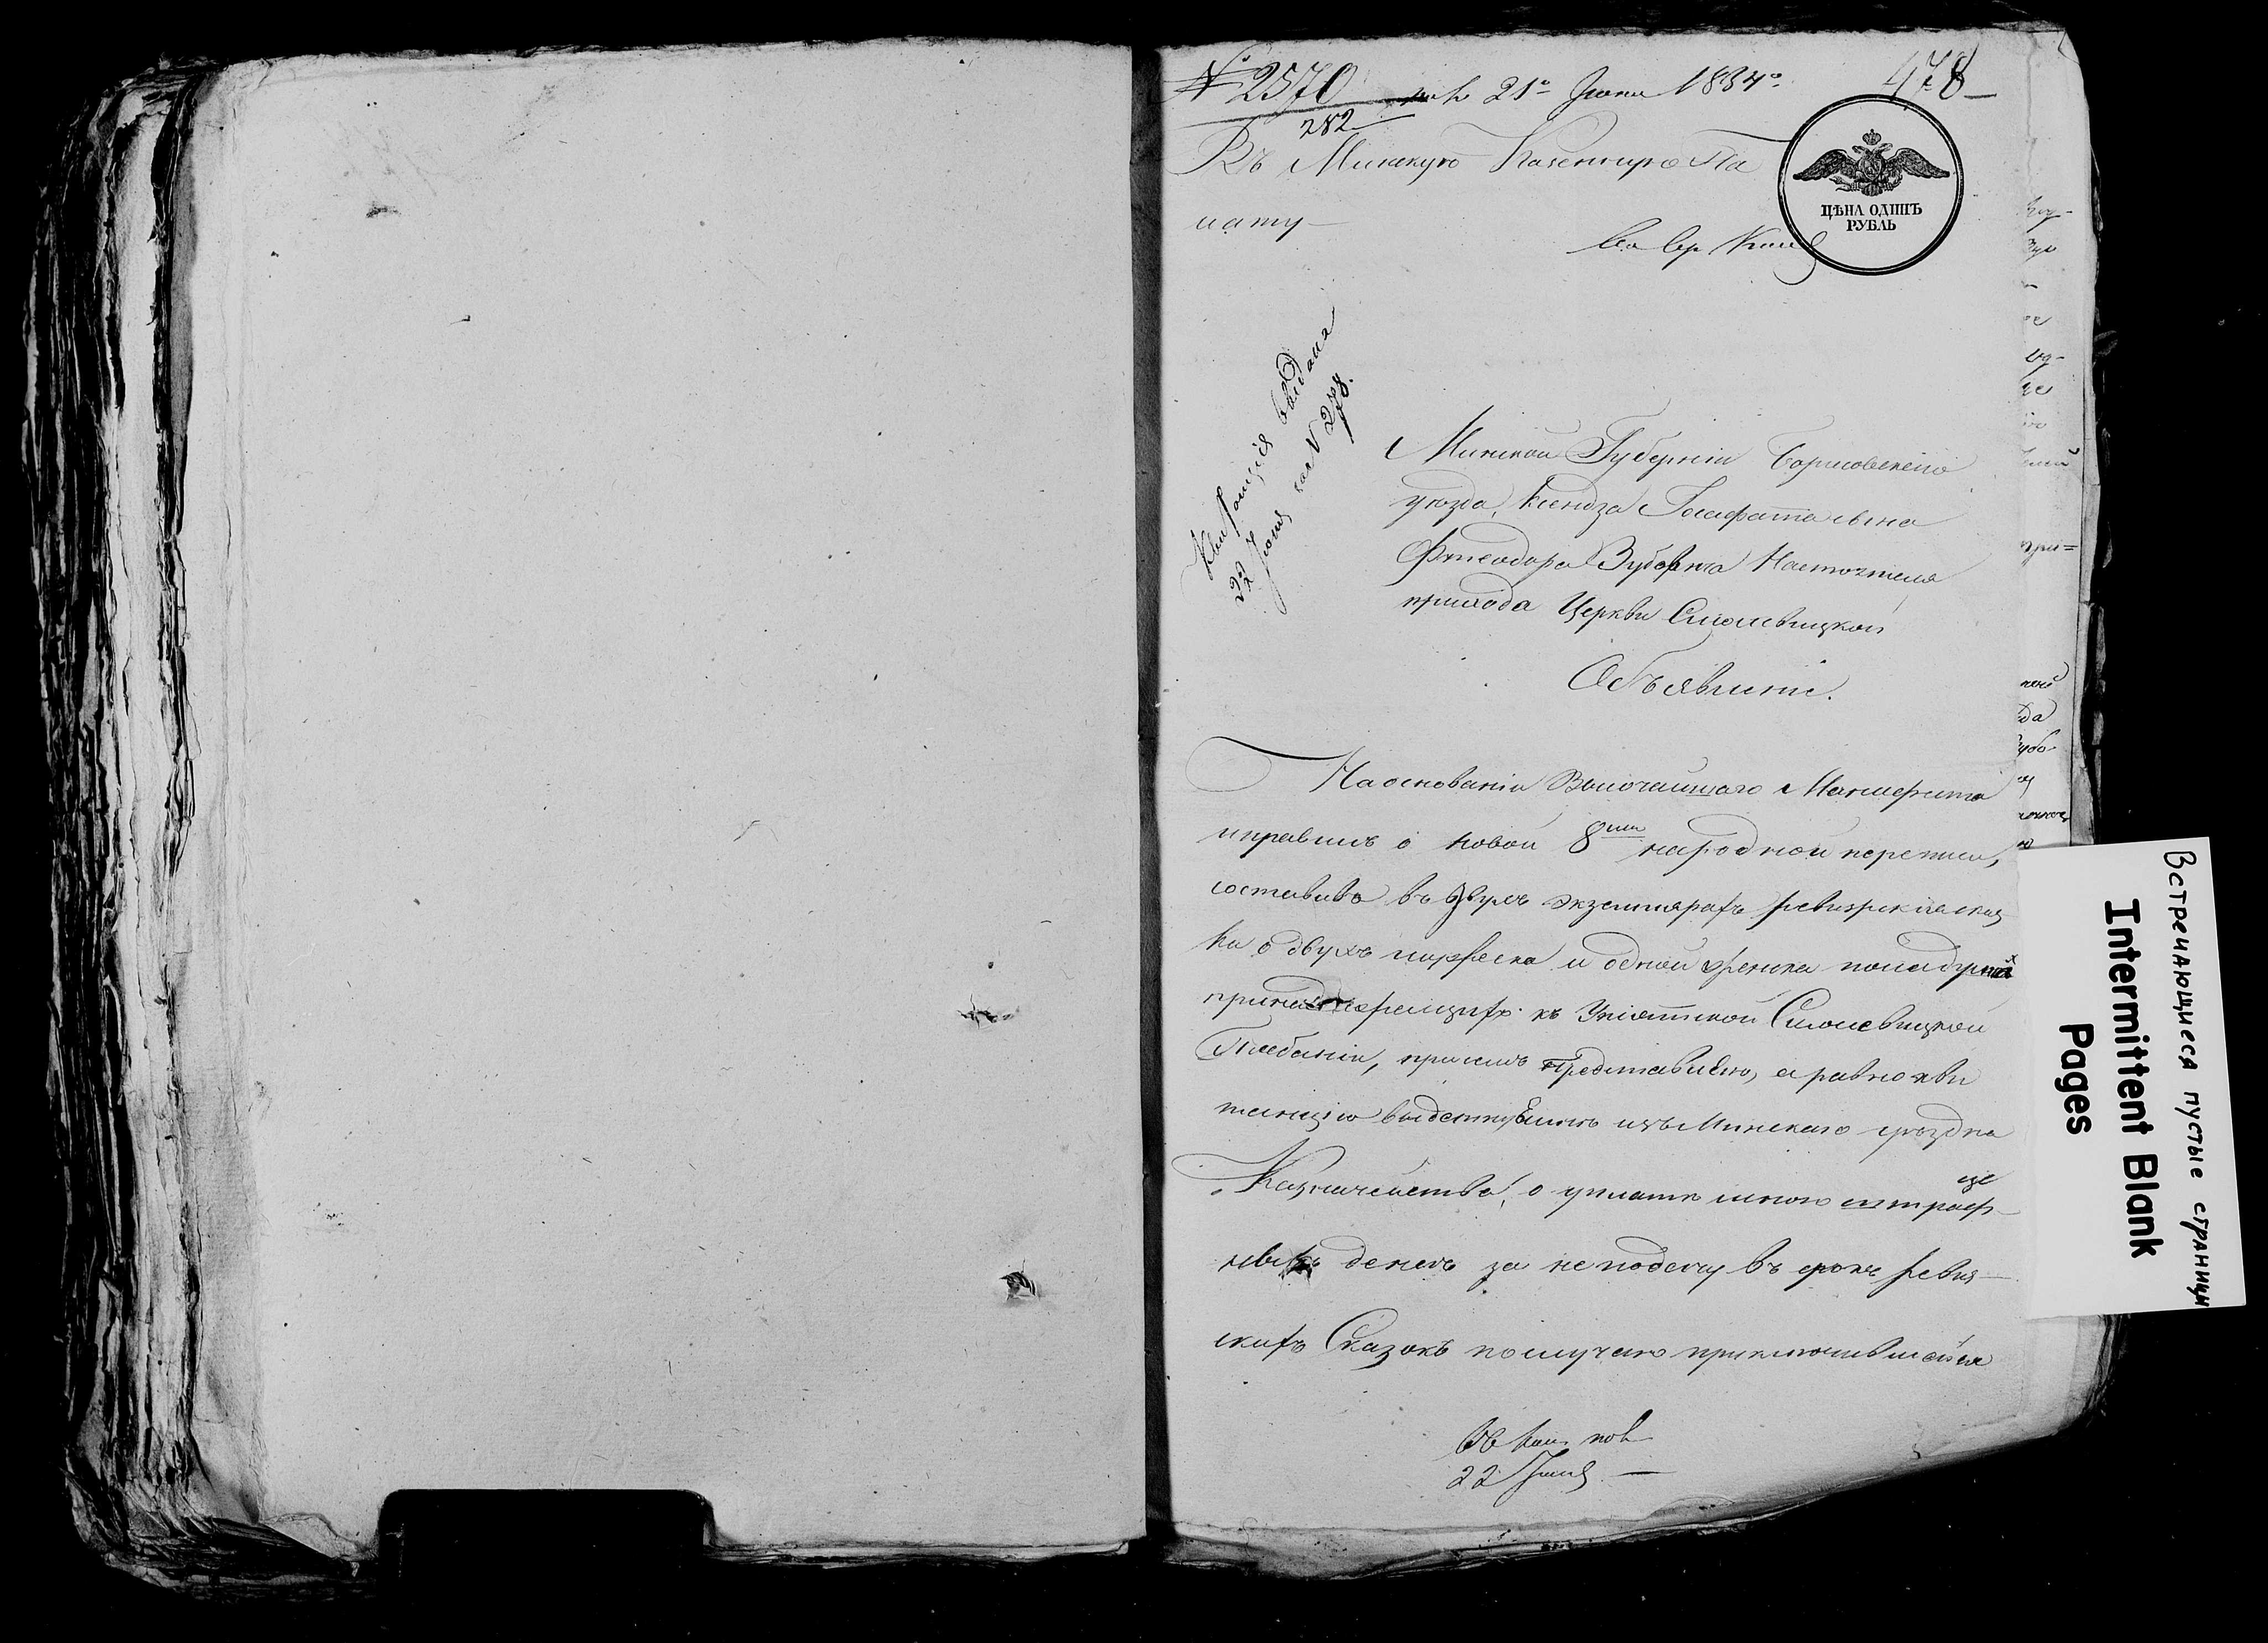 № 2570 21º Іюня 1834º 478
282
Въ Минскую Казенную Па
лату
ЦѢНА ОДИНЪ
РУБЛЬ
Квитанція выдана
22 Іюня за N 278.
Минской Губерніи Борисовскаго
уѣзда, Ксендза Іосафата сына
Фтеодора Зубовича Настоятеля
прихода Церкви Смолевицкой
Объявленіе.
На основаніи Высочайшаго Манифеста
и правилъ о новой 8мой народной переписи,
составивъ въ двухъ экземплярахъ ревизскія сказ
ки о двухъ мужеска и одной женска пола душъ
принадлежащихъ къ Уніятской Смолевицкой
Плебаніи, при семъ представляю, а равно кви
танцію выданную изъ Минскаго уѣздна
Казначейства, о уплатѣ мною штраф
ныхъ денегъ за не подачу въ срокъ ревиз
скихъ Сказокъ по случаю приключившейся
22 Іюня
Встречающиеся пустые страницы
Intermittent Blank
Pages